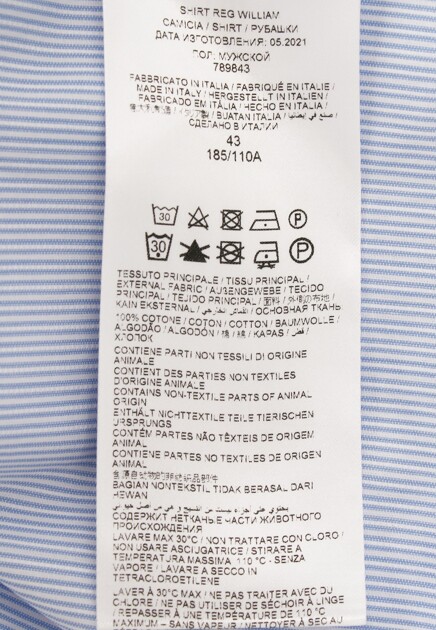 SHIRT REG WILLIAM
CAMICIA / SHIRT / РУБАШКИ
ДАТА ИЗГОТОВЛЕНИЯ: 05.2021
ПОЛ: МУЖСКОЙ
789843
FABBRICATO IN ITALIA / FABRIQUÉ EN ITALIE /
MADE IN ITALY / HERGESTELLT IN ITALIEN /
FABRICADO EM ITÁLIA / HECHO EN ITALIA /
/ BUATAN ITALIA / صنع في إيطاليا /
СДЕЛАНО В ИТАЛИИ
43
185/110A
30 P
30 P
TESSUTO PRINCIPALE / TISSU PRINCIPAL /
EXTERNAL FABRIC / AUßENGEWEBE / TECIDO
PRINCIPAL / TEJIDO PRINCIPAL / 面料 / 外側の布地 /
KAIN EKSTERNAL / القماش الخارجي / ОСНОВНАЯ ТКАНЬ
100% COTONE / COTON / COTTON / BAUMWOLLE /
ALGODÃO / ALGODÓN / 棉 / 綿 / KAPAS / قطن /
ХЛОПОК
CONTIENE PARTI NON TESSILI DI ORIGINE
ANIMALE
CONTIENT DES PARTIES NON TEXTILES
D'ORIGINE ANIMALE
CONTAINS NON-TEXTILE PARTS OF ANIMAL
ORIGIN
ENTHÄLT NICHTTEXTILE TEILE TIERISCHEN
URSPRUNGS
CONTÉM PARTES NÃO TÊXTEIS DE ORIGEM
ANIMAL
CONTIENE PARTES NO TEXTILES DE ORIGEN
ANIMAL
含源自动物的非纺织品部件
BAGIAN NONTEKSTIL TIDAK BERASAL DARI
HEWAN
يحتوي على أجزاء ليست من النسيج و هي من أصل حيواني
СОДЕРЖИТ НЕТКАНЫЕ ЧАСТИ ЖИВОТНОГО
ПРОИСХОЖДЕНИЯ
LAVARE MAX 30°C / NON TRATTARE CON CLORO /
NON USARE ASCIUGATRICE / STIRARE A
TEMPERATURA MASSIMA 110 °C - SENZA
VAPORE / LAVARE A SECCO IN
TETRACLOROETILENE
LAVER À 30°C MAX / NE PAS TRAITER AVEC DU
CHLORE / NE PAS UTILISER DE SÉCHOIR À LINGE
/ REPASSER À UNE TEMPÉRATURE DE 110 °C
MAXIMUM – SANS VAPEUR / NETTOYER À SEC AU